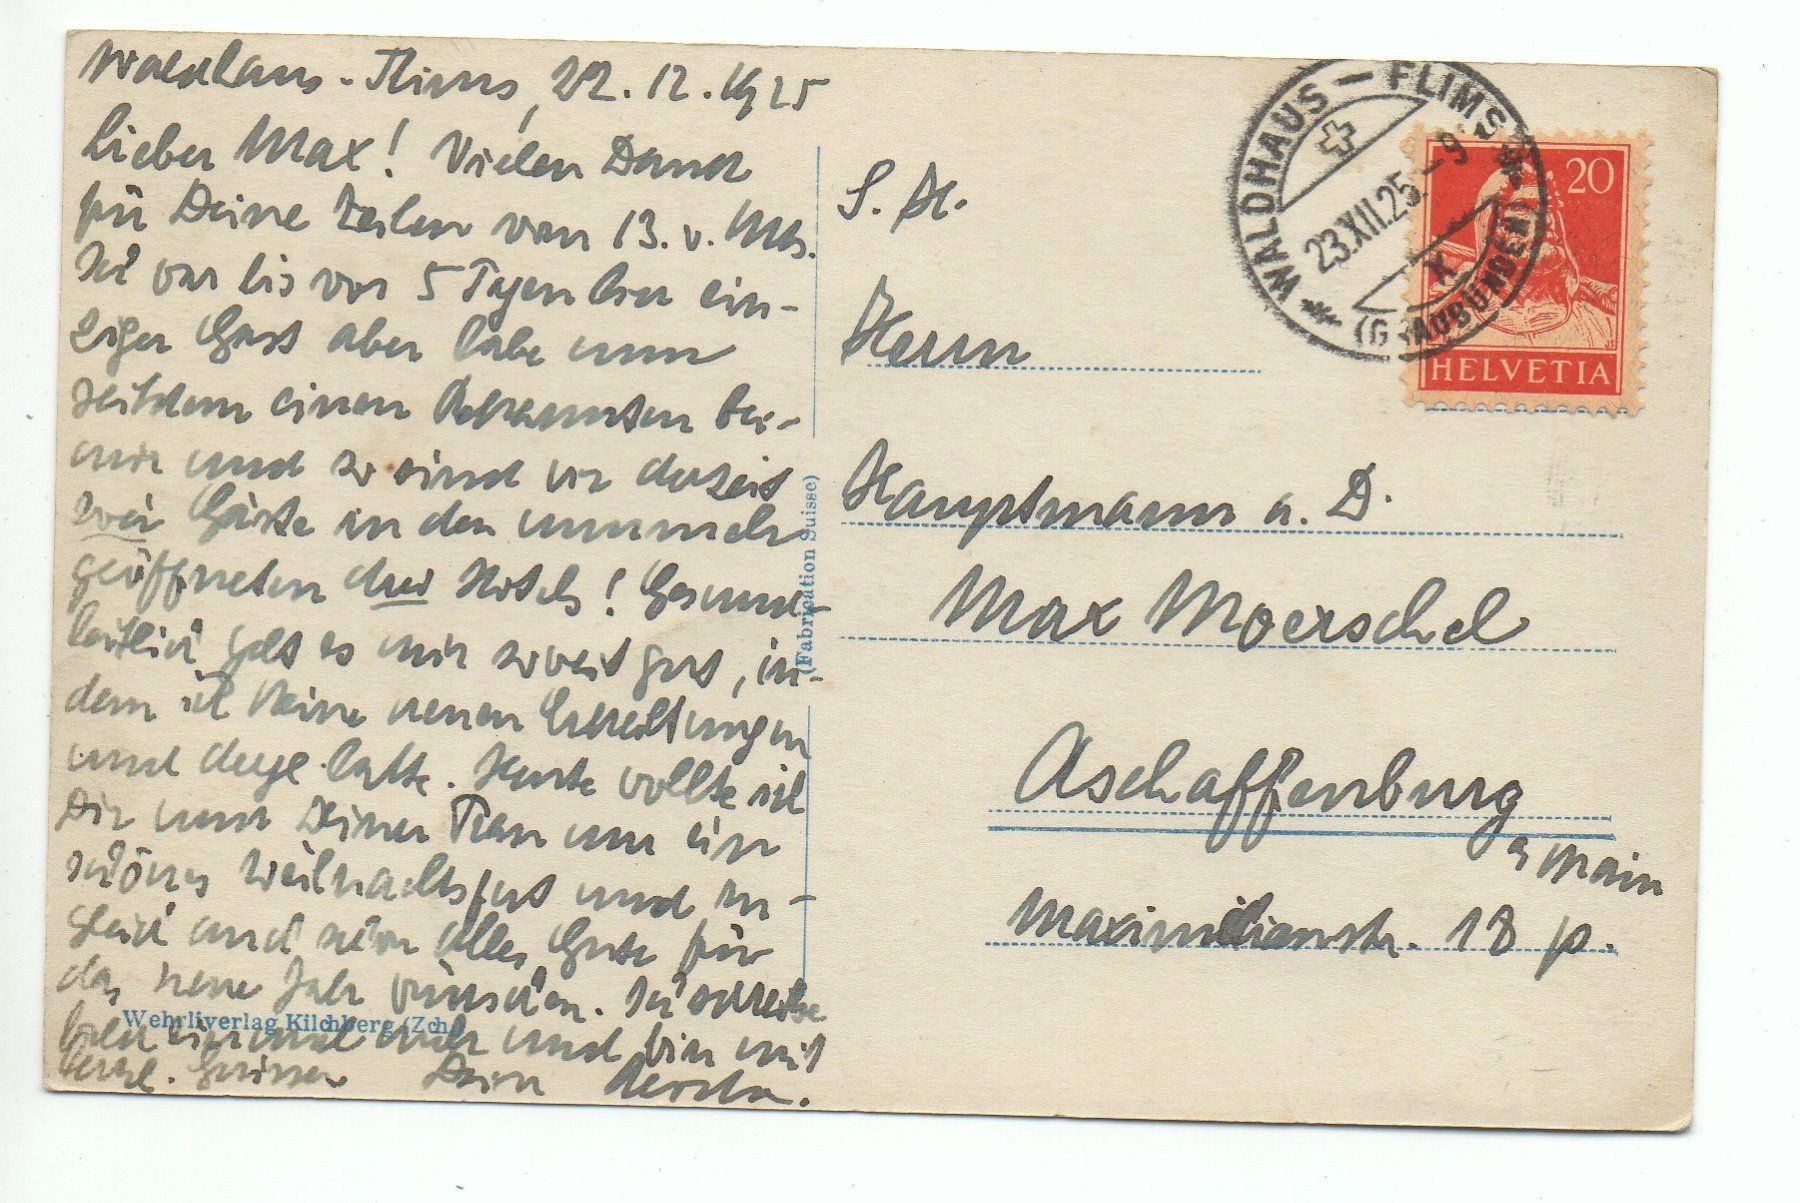 Waldhaus-Flims, 22.12.1925
Lieber Max! Vielen Dank
für Deine Zeilen vom 13. v. Mts.
Ich war bis vor 5 Tagen hier ein-
ziger Gast aber habe nun
seitdem einen Bekannten bei
mir und so sind wir derzeit
zwei Gäste in den nunmehr
geöffneten drei Hotels! Gesund-
heitlich geht es mir soweit gut, in-
dem ich keine neuen Erkältungen
und dergl. hatte. Heute wollte ich
Dir und Deiner Frau nur ein
schönes Weihnachtsfest und zu-
gleich auch schon alles Gute für
das neue Jahr wünschen. Ich schreibe
bald einmal mehr und bin mit
herzl. Grüssen Dein
Wehrliverlag Kilchberg (Zch.)
(Fabrication Suisse)
WALDHAUS - FLIMS
23.XII.25.-9
(GRAUBÜNDEN)
20
HELVETIA
S. H.
Herrn
Hauptmann a. D.
Max Moerschel
Aschaffenburg
a Main
Maximilianstr. 18 p.